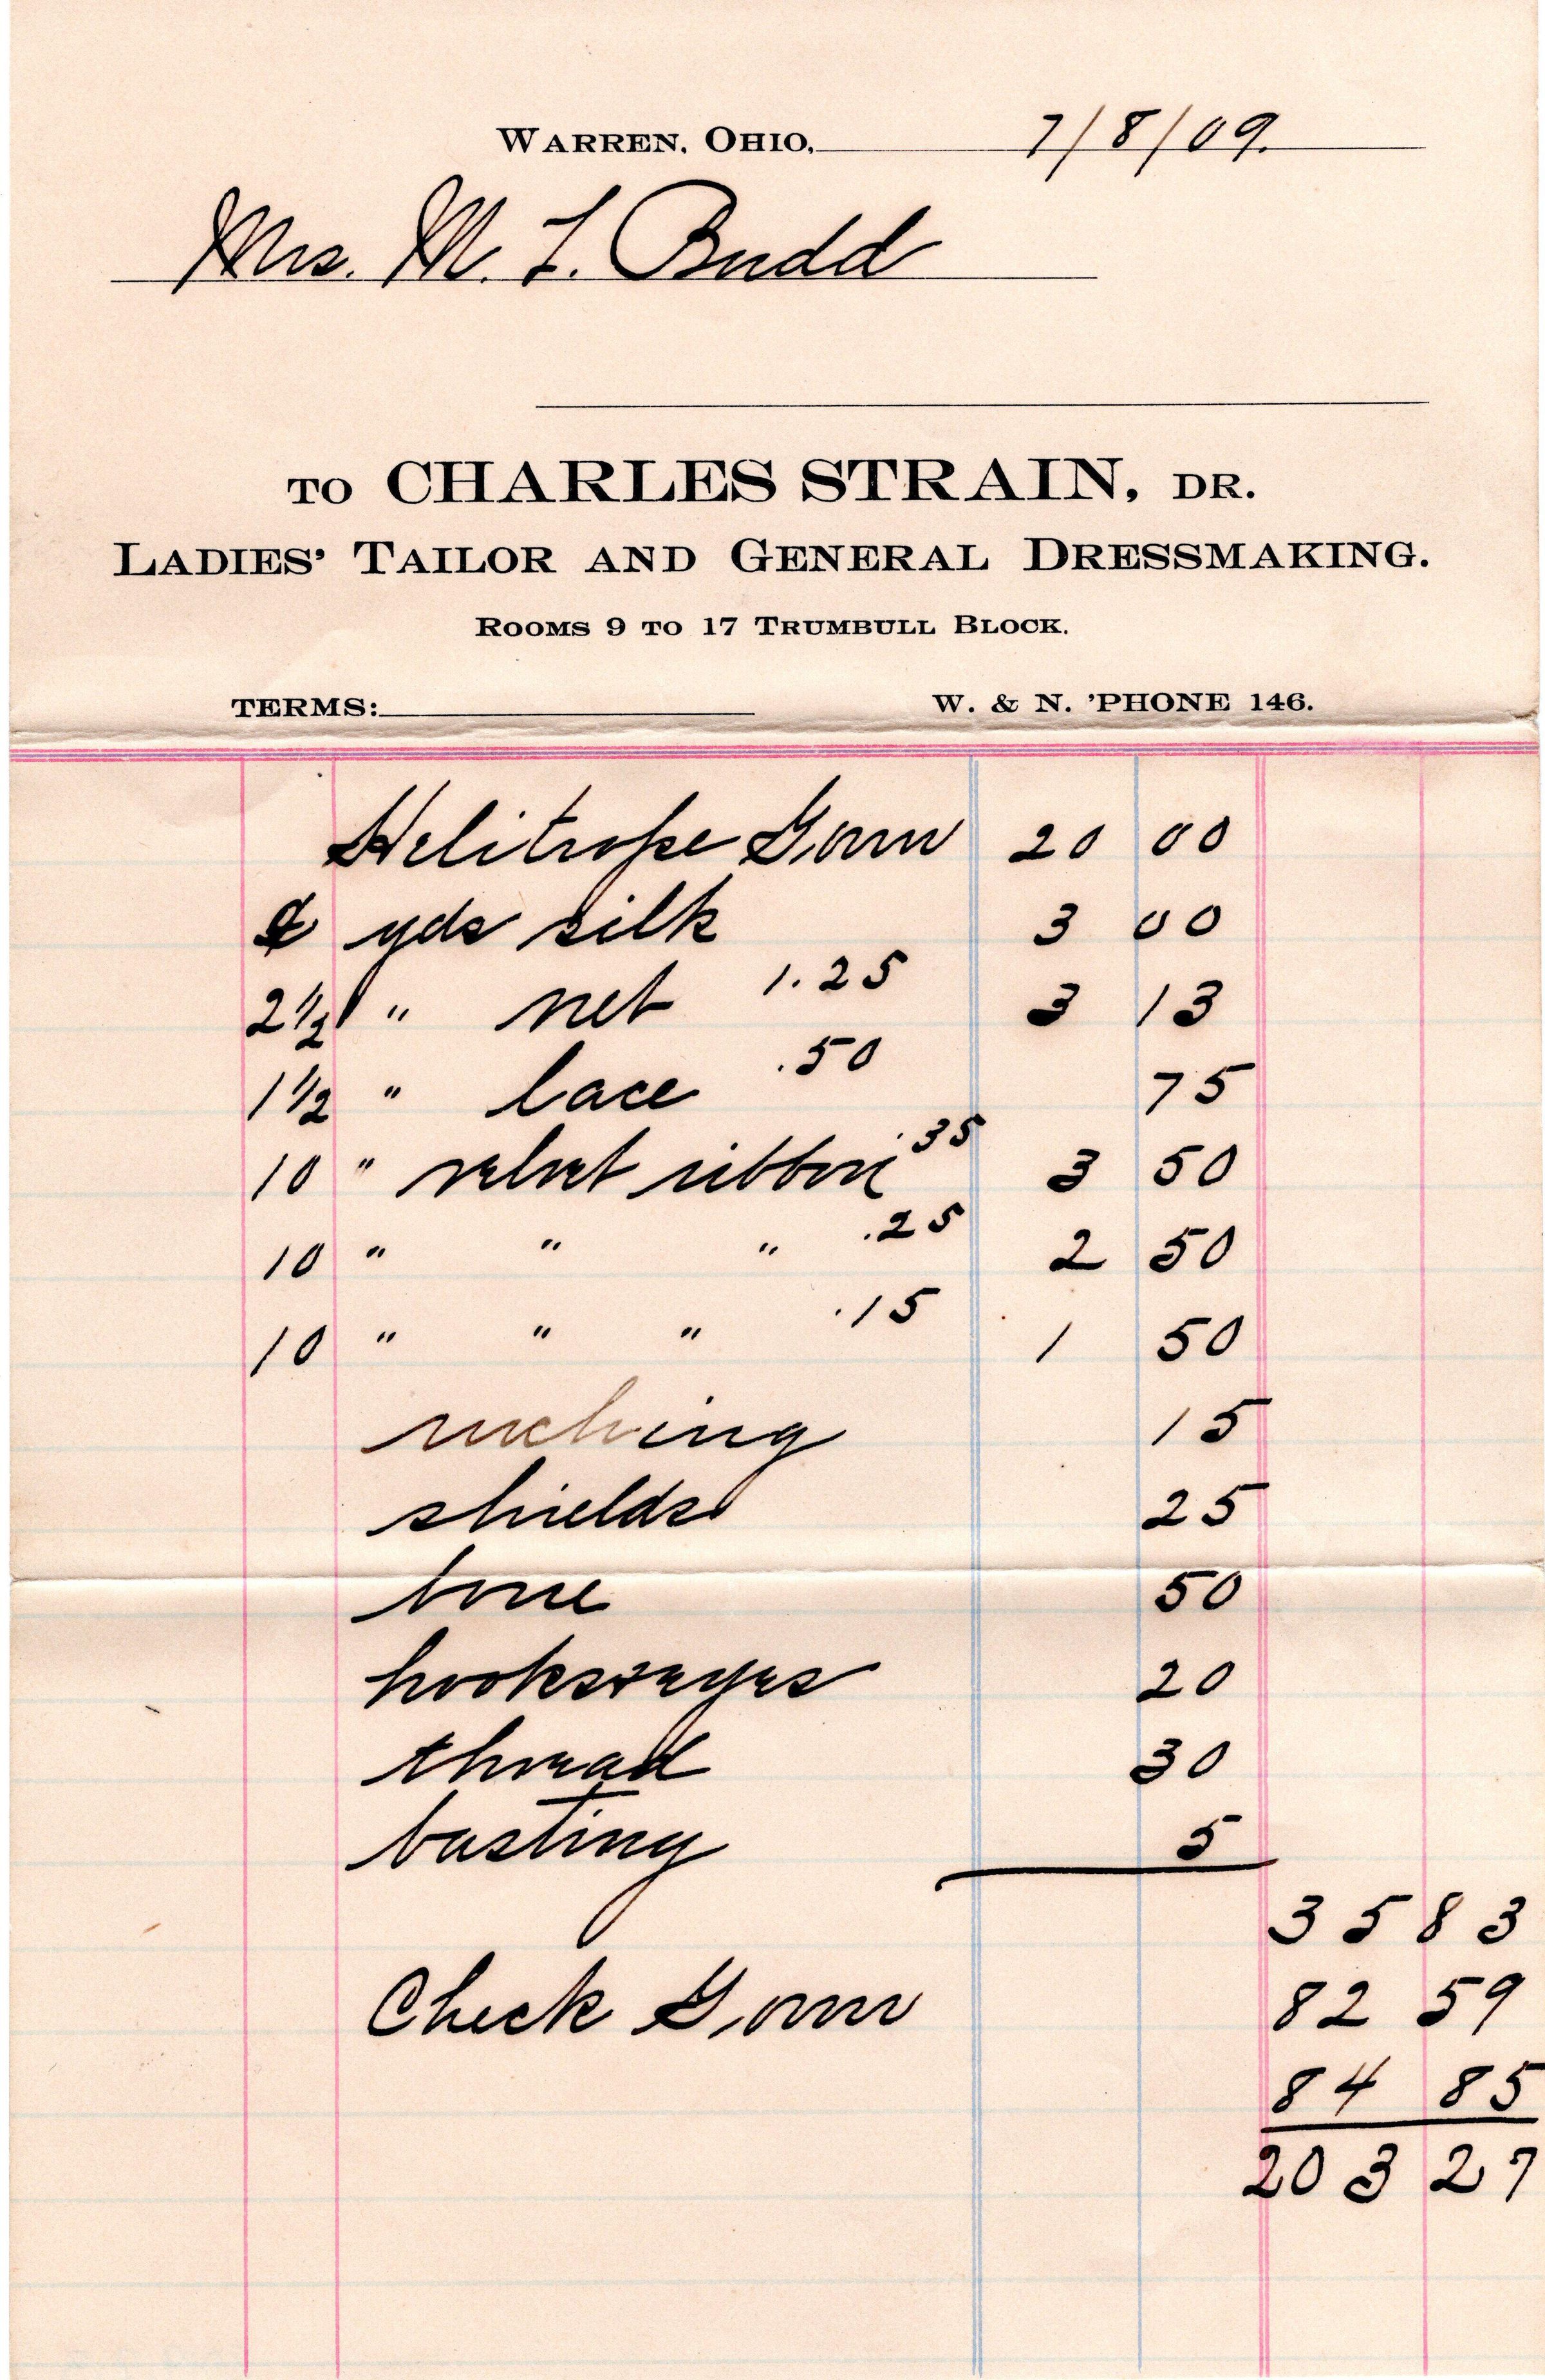 WARREN, OHIO, 7/8/09.
Mrs. M. L. Budd
TO CHARLES STRAIN, DR.
LADIES' TAILOR AND GENERAL DRESSMAKING.
ROOMS 9 TO 17 TRUMBULL BLOCK.
TERMS: W. & N. 'PHONE 146.
Helitrope Gown 20 00
yds silk 3 00
2 1/2 " net 1.25 3 13
1 1/2 " lace .50 75
10 " velvet ribbon .35 3 50
10 " " " .25 2 50
10 " " " .15 1 50
ruching 15
shields 25
bone 50
hooks & eyes 20
thread 30
basting 5
35 83
Check Gown 82 59
84 85
203 27